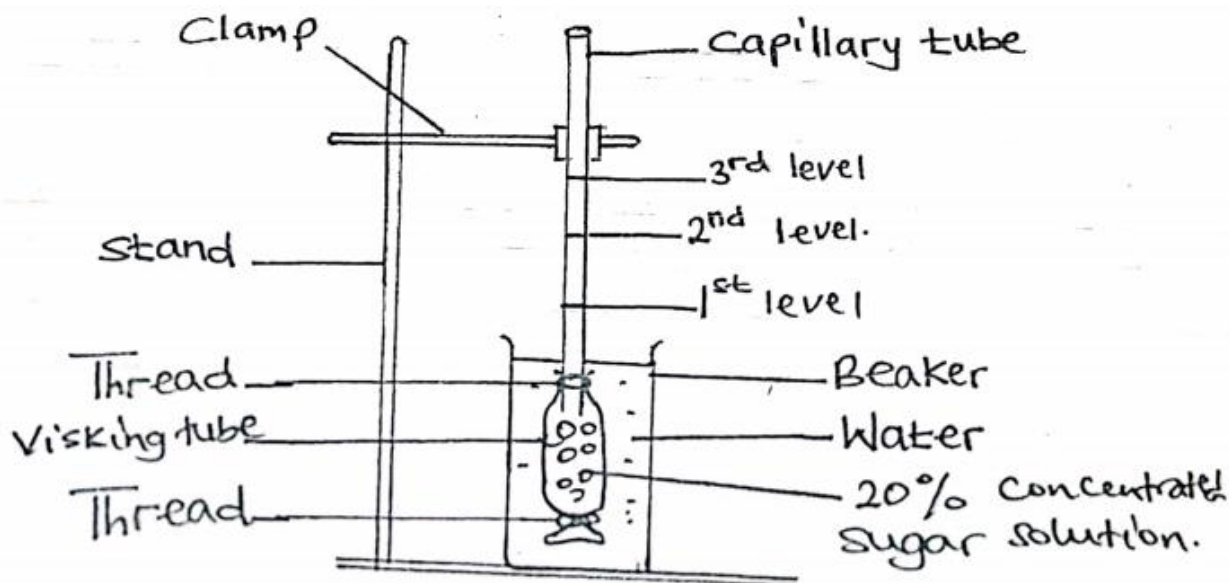 Clamp
Capillary tube
3rd level
2nd level.
Stand
1st level
Thread
Beaker
Visking tube
Water
Thread
20% Concentrated
sugar solution.